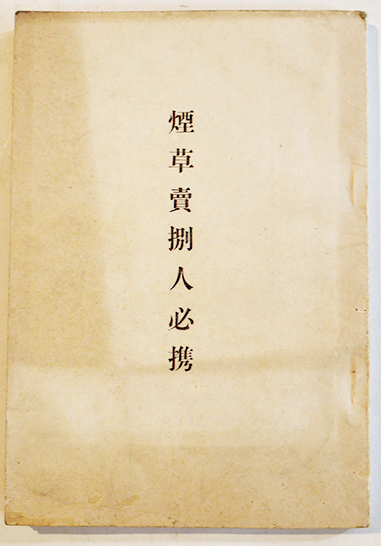 煙草賣捌人必携